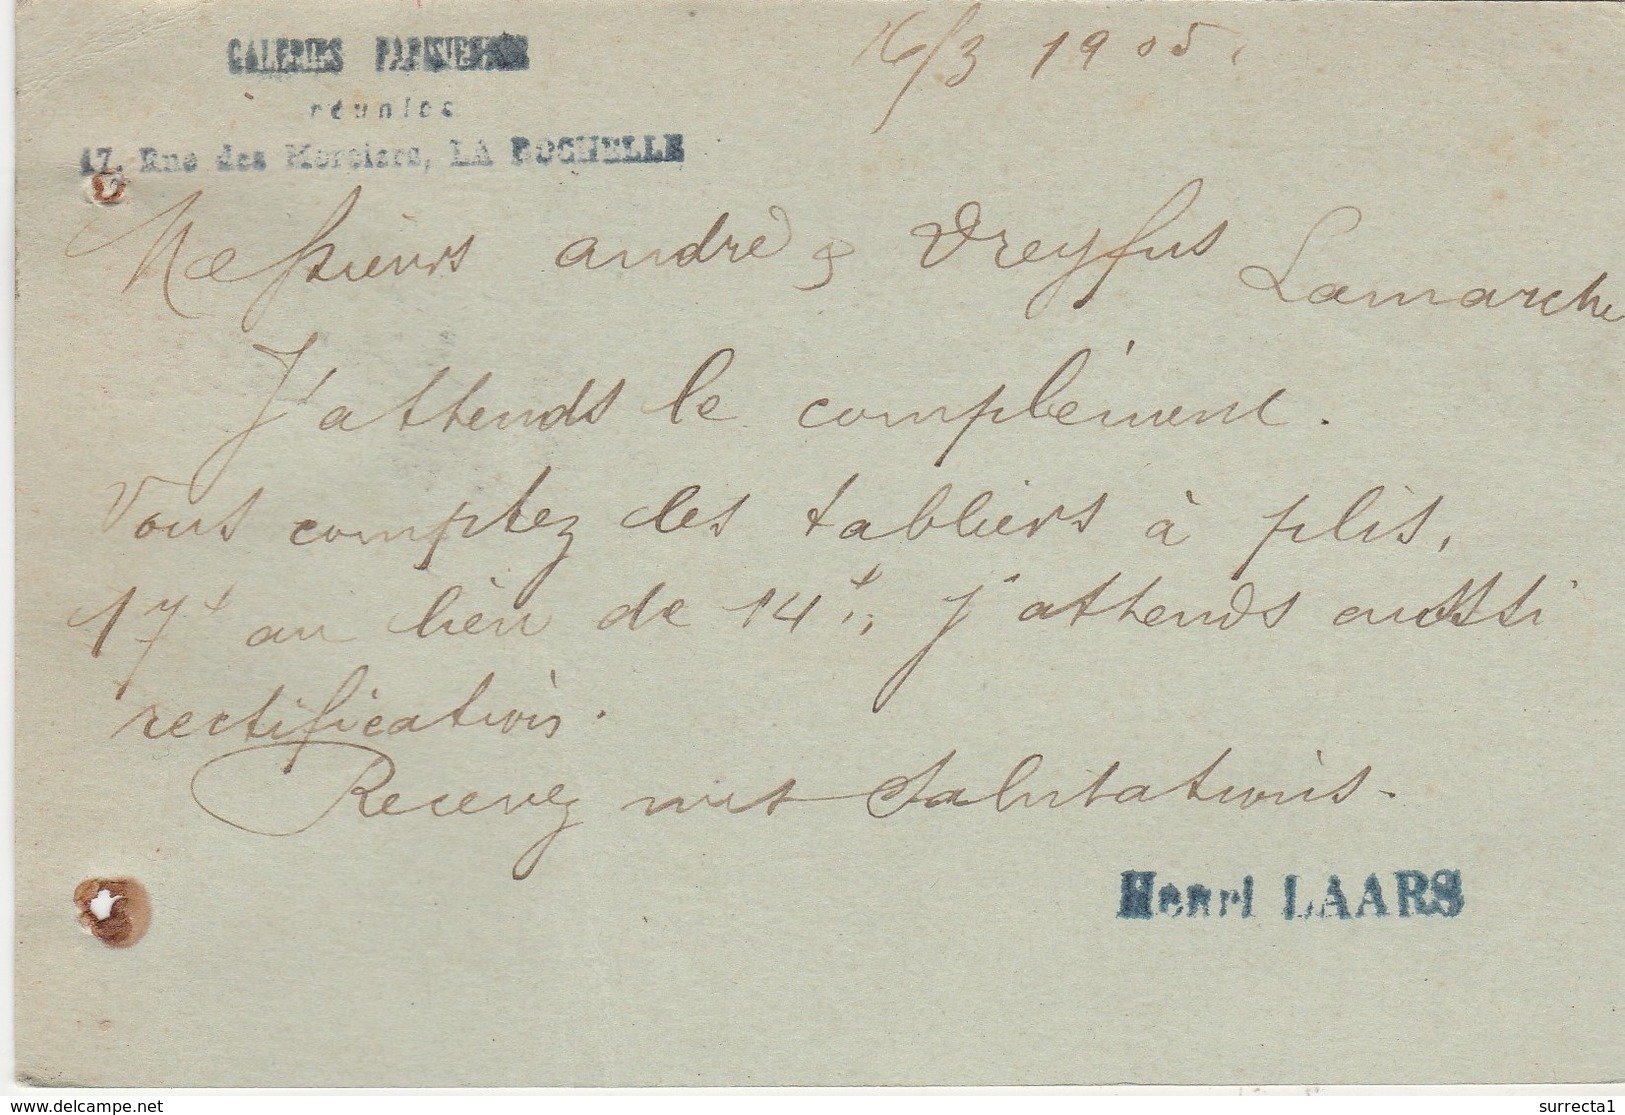 GALERIES PARISIENNES
réunies
17, Rue des Merciers, LA ROCHELLE
16/3 1905.
Messieurs andré & Dreyfus
Lamarche
J'attends le complément.
Vous comptez des tabliers à plis,
17f au lieu de 14f., j'attends aussi
rectification.
Recevez mes Salutations.
Henri LAARS
www.delcampe.net
surrecta1